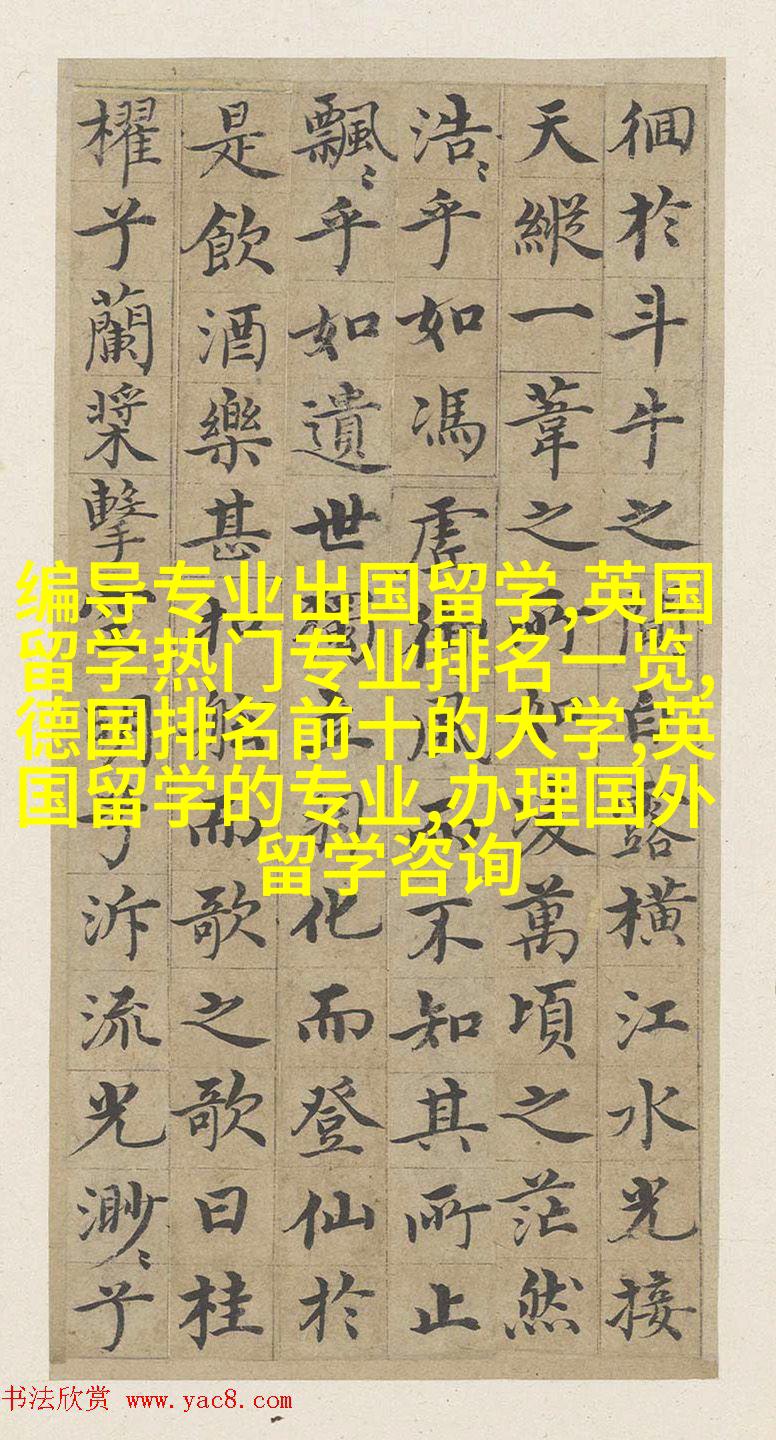 徊於斗牛之間白露橫江水光接
天縱一葦之所如凌萬頃之茫然
浩〻乎如馮虛御風而不知其所止
飄〻乎如遺世獨立羽化而登仙於
是飲酒樂甚扣舷而歌之歌曰桂
櫂兮蘭槳擊空明兮泝流光渺〻兮
编导专业出国留学,英国
留学热门专业排名一览,
德国排名前十的大学,英
国留学的专业,办理国外
留学咨询
书法欣赏 www.yac8.com